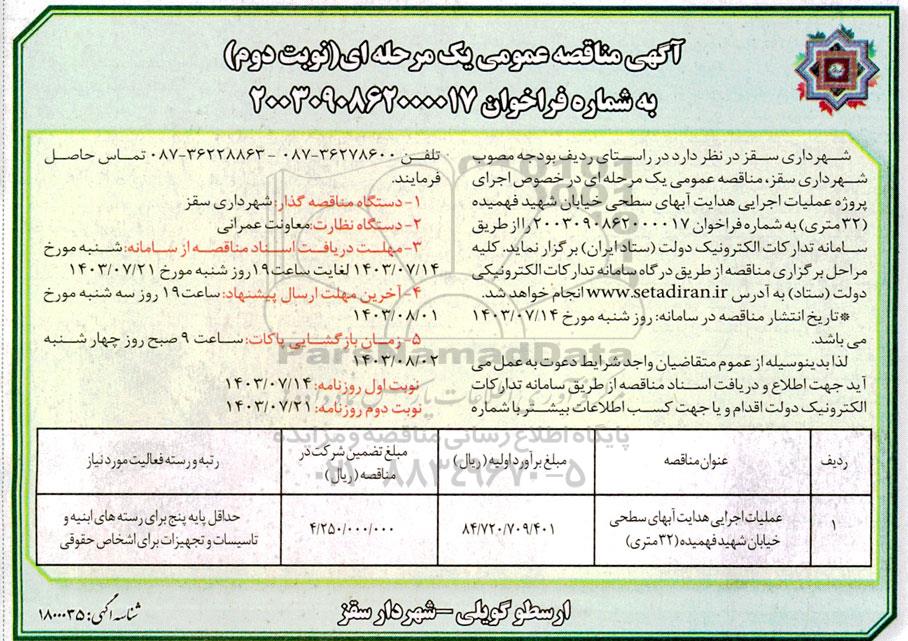 آگهی مناقصه عمومی یک مرحله ای(نوبت دوم)
به شماره فراخوان ۲۰۰۳۰۹۰۸۶۲۰۰۰۰۱۷
شهرداری سقز در نظر دارد در راستای ردیف بودجه مصوب
شهرداری سقز، مناقصه عمومی یک مرحله ای در خصوص اجرای
پروژه عملیات اجرایی هدایت آبهای سطحی خیابان شهید فهمیده
(۳۲متری) به شماره فراخوان ۲۰۰۳۰۹۰۸۶۲۰۰۰۰۱۷ را از طریق
سامانه تدارکات الکترونیک دولت (ستاد ایران) برگزار نماید. کلیه
مراحل برگزاری مناقصه از طریق درگاه سامانه تدارکات الکترونیکی
دولت (ستاد) به آدرس www.setadiran.ir انجام خواهد شد.
*تاریخ انتشار مناقصه در سامانه: روز شنبه مورخ ۱۴۰۳/۰۷/۱۴
می باشد.
لذا بدینوسیله از عموم متقاضیان واجد شرایط دعوت به عمل می
آید جهت اطلاع و دریافت اسناد مناقصه از طریق سامانه تدارکات
الکترونیک دولت اقدام و یا جهت کسب اطلاعات بیشتر با شماره
تلفن ۳۶۲۷۸۶۰۰-۰۸۷ - ۳۶۲۲۸۸۶۳-۰۸۷ تماس حاصل
فرمایند.
۱- دستگاه مناقصه گذار: شهرداری سقز
۲- دستگاه نظارت: معاونت عمرانی
۳- مهلت دریافت اسناد مناقصه از سامانه: شنبه مورخ
۱۴۰۳/۰۷/۱۴ لغایت ساعت ۱۹ روز شنبه مورخ ۱۴۰۳/۰۷/۲۱
۴- آخرین مهلت ارسال پیشنهاد: ساعت ۱۹ روز سه شنبه مورخ
۱۴۰۳/۰۸/۰۱
۵- زمان بازگشایی پاکات: ساعت ۹ صبح روز چهار شنبه
۱۴۰۳/۰۸/۰۲
نوبت اول روزنامه: ۱۴۰۳/۰۷/۱۴
نوبت دوم روزنامه: ۱۴۰۳/۰۷/۲۱
ParsNamadData
پایگاه اطلاع رسانی مناقصه و مزایده
۰۲۱-۸۸۳۴۹۶۷۰-۵
ردیف
عنوان مناقصه
مبلغ برآورد اولیه (ریال)
مبلغ تضمین شرکت در
مناقصه (ریال)
رتبه و رسته فعالیت مورد نیاز
۱
عملیات اجرایی هدایت آبهای سطحی
خیابان شهید فهمیده (۳۲متری)
۸۴/۷۲۰/۷۰۹/۴۰۱
۴/۲۵۰/۰۰۰/۰۰۰
حداقل پایه پنج برای رسته های ابنیه و
تاسیسات و تجهیزات برای اشخاص حقوقی
ارسطو گویلی - شهردار سقز
شناسه آگهی: ۱۸۰۰۰۳۵